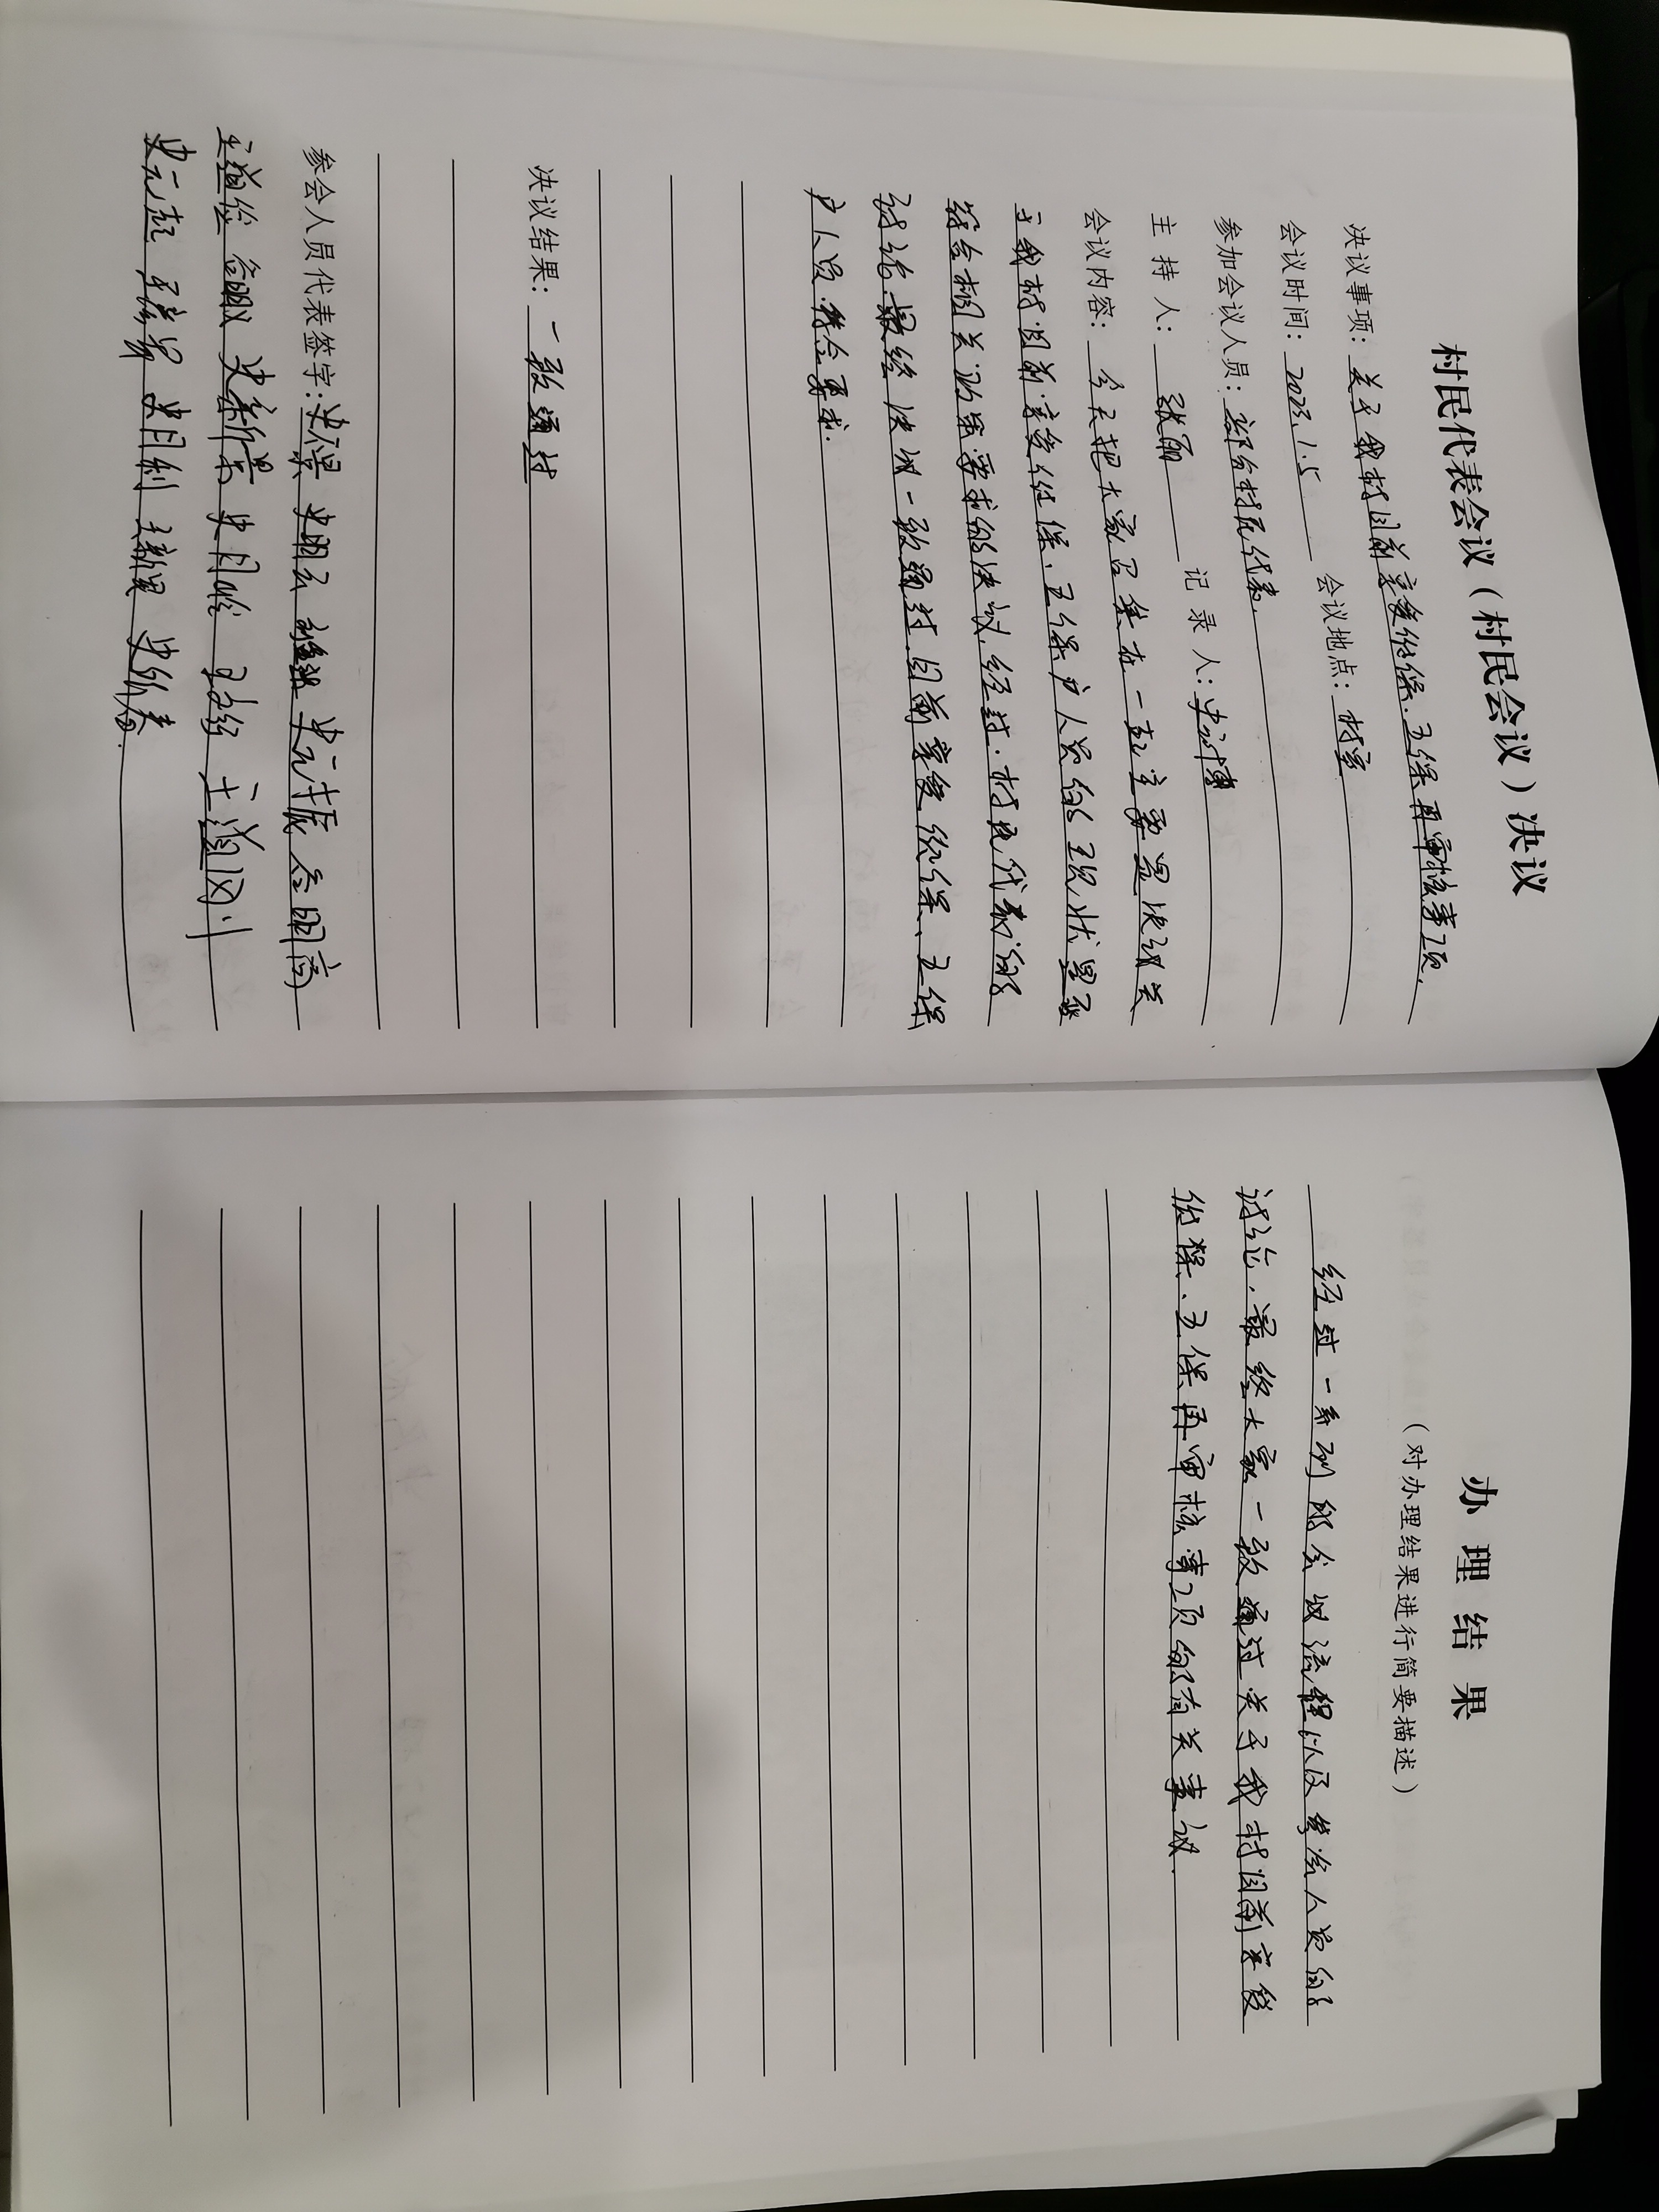 村民代表会议（村民会议）决议
决议事项：关于我村目前享受低保、五保再审核事项.
会议时间：2023.1.5 会议地点：村室
参加会议人员：部分村民代表.
主持人：张丽 记录人：史
会议内容：今天把大家召集在一起主要是决议关
于我村目前享受低保、五保户人员的现状是否
符合相关政策要求的决议,经过村民代表的
讨论.最终决议一致通过,目前享受低保、五保
户人员符合要求.
决议结果：一致通过
参会人员代表签字： 史明云 史元振 谷明高
王道俭 谷明义 史新景 王文行 王道刚
史元起 王彦昇 史月利 史新春.
办理结果
（对办理结果进行简要描述）
经过一系列的会议流程以及参会人员的
讨论.最终大家一致通过关于我村目前享受
低保、五保再审核事项的有关事议.